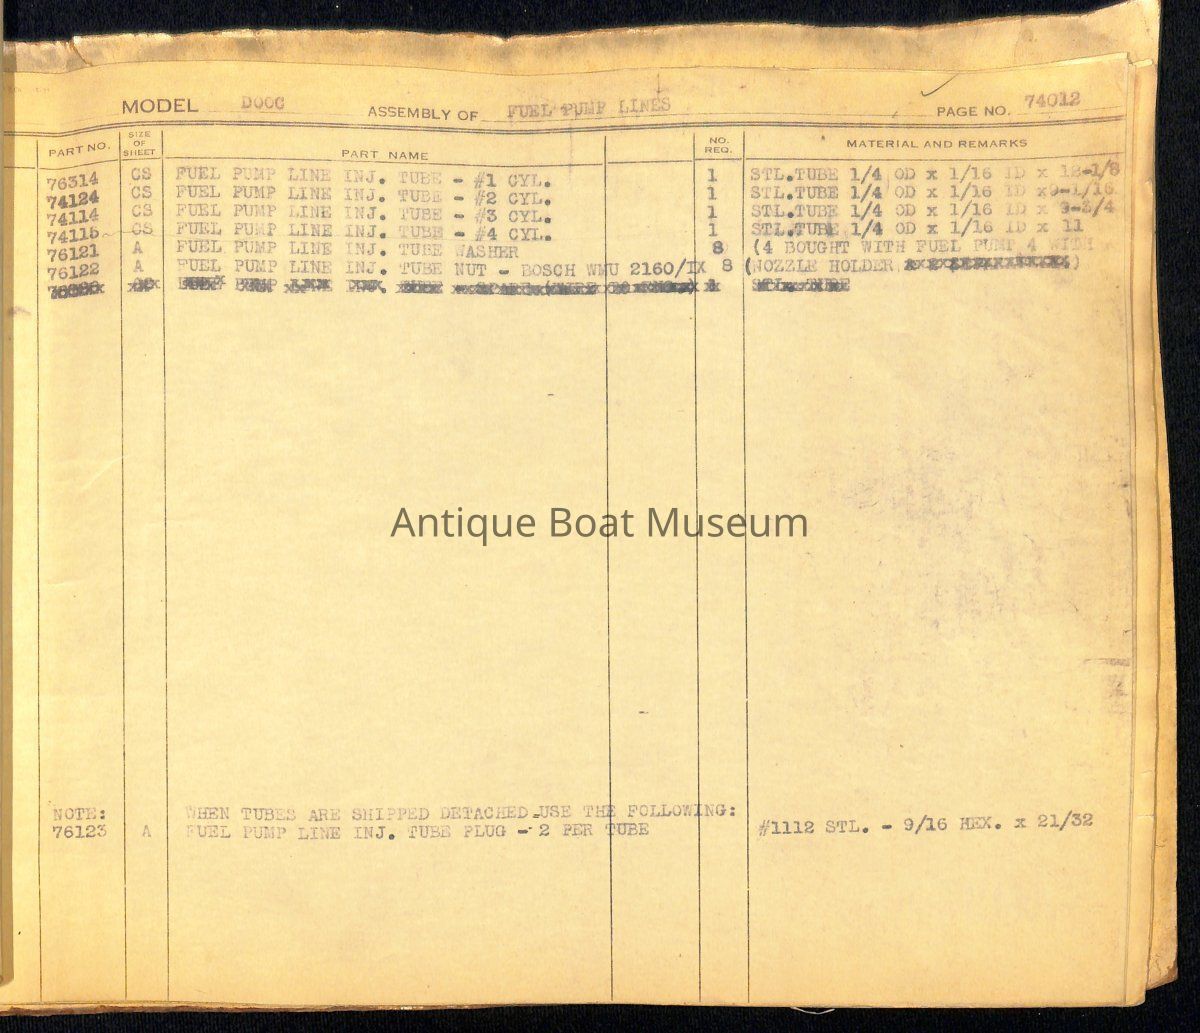 MODEL DOOC ASSEMBLY OF FUEL PUMP LINES PAGE NO. 74012
PART NO. SIZE OF SHEET PART NAME NO. REQ. MATERIAL AND REMARKS
76314 CS FUEL PUMP LINE INJ. TUBE - #1 CYL. 1 STL.TUBE 1/4 OD x 1/16 ID x 12-1/8
74124 CS FUEL PUMP LINE INJ. TUBE - #2 CYL. 1 STL.TUBE 1/4 OD x 1/16 ID x 9-1/16
74114 CS FUEL PUMP LINE INJ. TUBE - #3 CYL. 1 STL.TUBE 1/4 OD x 1/16 ID x 9-3/4
74115 CS FUEL PUMP LINE INJ. TUBE - #4 CYL. 1 STL.TUBE 1/4 OD x 1/16 ID x 11
76121 A FUEL PUMP LINE INJ. TUBE WASHER 8 (4 BOUGHT WITH FUEL PUMP 4 WITH
76122 A FUEL PUMP LINE INJ. TUBE NUT - BOSCH WMU 2160/IX 8 (NOZZLE HOLDER )
Antique Boat Museum
NOTE: WHEN TUBES ARE SHIPPED DETACHED USE THE FOLLOWING:
76123 A FUEL PUMP LINE INJ. TUBE PLUG - 2 PER TUBE #1112 STL. - 9/16 HEX. x 21/32